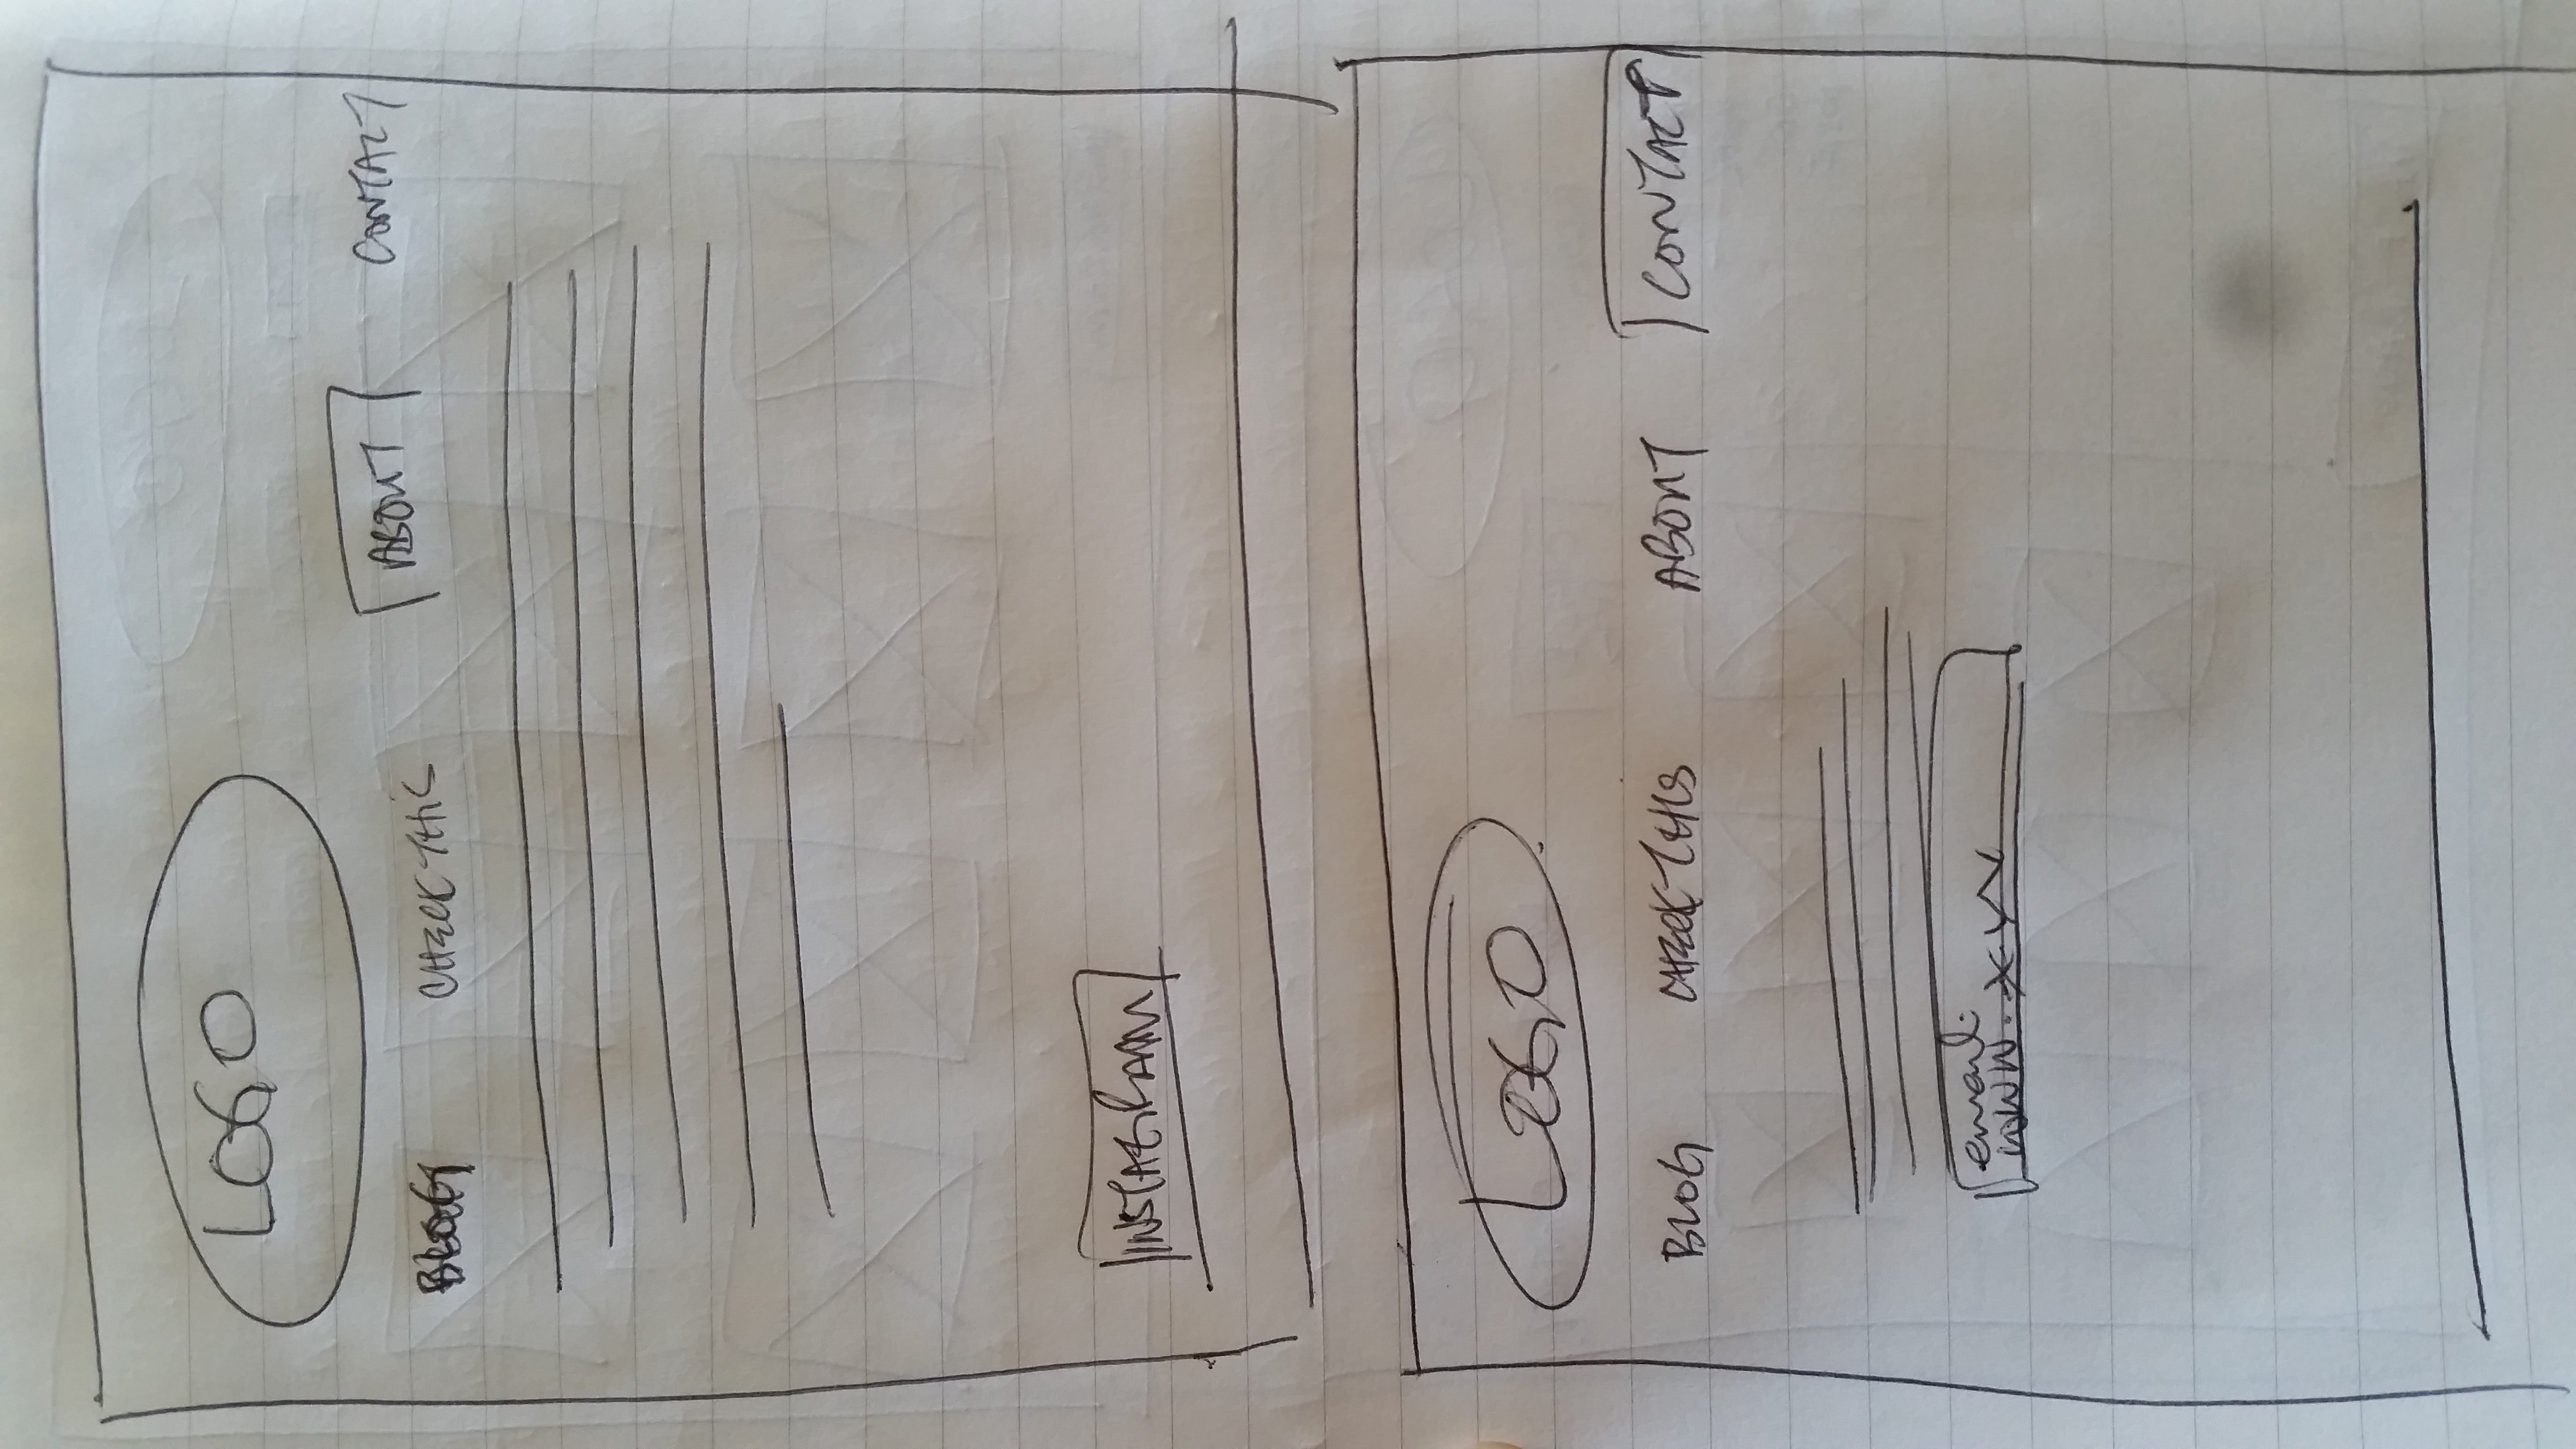 LOGO
BLOG CHECK THIS ABOUT CONTACT
INSTAGRAM
LOGO
BLOG CHECK THIS ABOUT CONTACT
email:
www.xyv